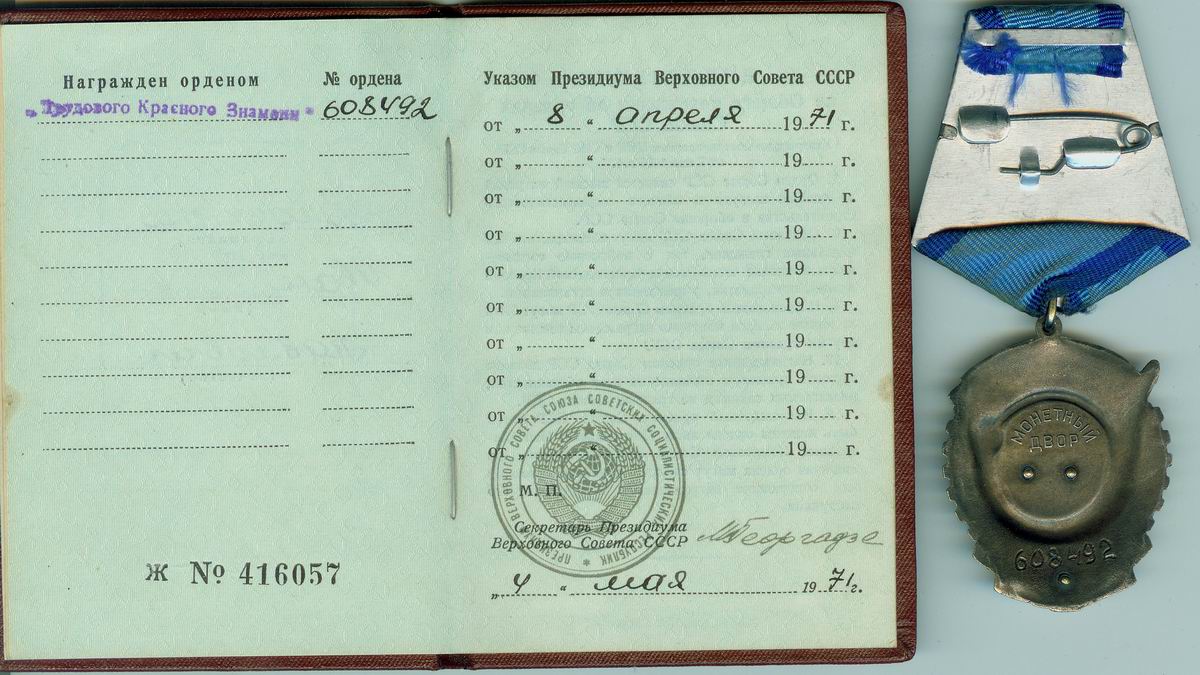 Награжден орденом
№ ордена
„Трудового Красного Знамени“
608492
Ж № 416057
Указом Президиума Верховного Совета СССР
от „ 8 “ апреля 1971 г.
от „ “ 19 г.
от „ “ 19 г.
от „ “ 19 г.
от „ “ 19 г.
от „ “ 19 г.
от „ “ 19 г.
от „ “ 19 г.
от „ “ 19 г.
от „ “ 19 г.
ПРЕЗИДИУМ ВЕРХОВНОГО СОВЕТА СОЮЗА СОВЕТСКИХ СОЦИАЛИСТИЧЕСКИХ РЕСПУБЛИК
М. П.
Секретарь Президиума
Верховного Совета СССР
МГеоргадзе
„ 4 “ мая 1971 г.
МОНЕТНЫЙ
ДВОР
608492